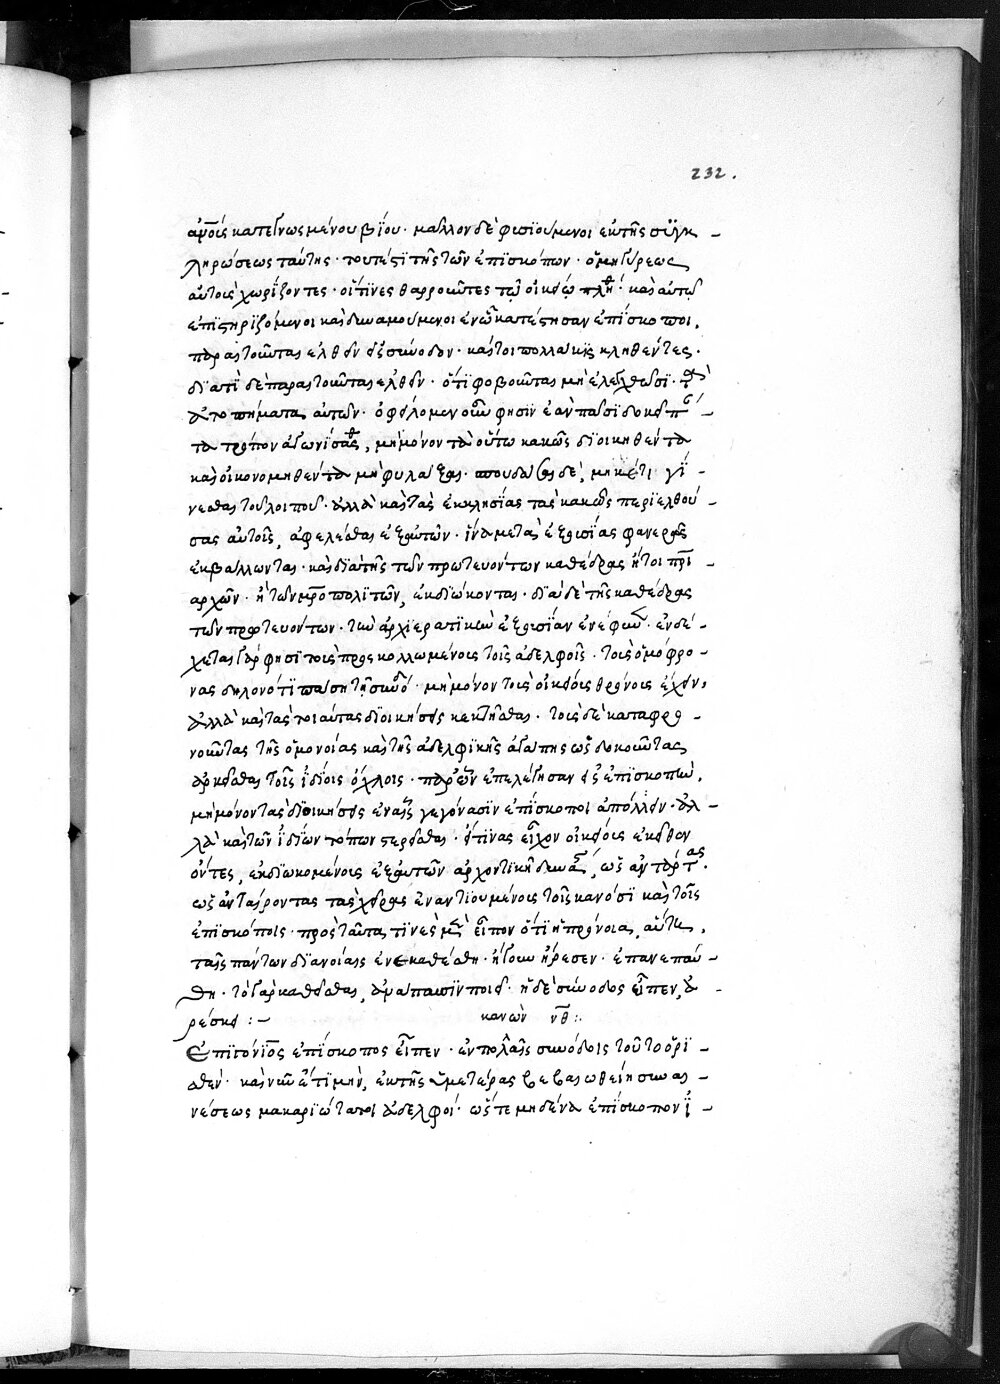 232.
αὐτοῖς κατεγνωσμένου βίου· μᾶλλον δὲ φυσιούμενοι ἐκ τῆς συγκ-
ληρώσεως ταύτης· τουτέστι τῆς τῶν ἐπισκόπων· ὁμηγύρεως
αὐτοὺς χωρίζοντες· οἵτινες θαρροῦντες τῷ οἰκείῳ πλήθει· καὶ αὐτῷ
ἐπιστηριζόμενοι καὶ δυναμούμενοι ἐν ᾧ κατέστησαν ἐπίσκοποι,
παραιτοῦνται ἐλθεῖν εἰς σύνοδον· καίτοι πολλάκις κληθέντες·
διατί δὲ παραιτοῦνται ἐλθεῖν· ὅτι φοβοῦνται μὴ ἐλεγχθῶσι· τὰ
ἀτοπήματα αὐτῶν· ὀφείλομεν οὖν φησὶν ἐὰν πᾶσι δοκεῖ
τρόπον ἀγωνίσασθαι, μὴ μόνον τὰ οὕτω κακῶς διοικηθέντα
καὶ οἰκονομηθέντα μὴ φυλάξαι· σπουδάσαι δὲ, μηκέτι γί-
νεσθαι τοῦ λοιποῦ· ἀλλὰ καὶ τὰς ἐκκλησίας τὰς κακῶς περιελθού-
σας αὐτοῖς, ἀφελέσθαι ἐξ αὐτῶν· ἵνα μετὰ ἐξουσίας φανερῶς
ἐκβάλλωνται· καὶ διὰ τῆς τῶν πρωτευόντων καθέδρας ἤτοι πατρι-
αρχῶν· ἢ τῶν μητροπολιτῶν, ἐκδιώκονται· διὰ δὲ τῆς καθέδρας
τῶν πρωτευόντων· τὴν ἀρχιερατικὴν ἐξουσίαν ἐνέφηνεν· ἐνδέ-
χεται γάρ φησι τοὺς προσκολλωμένους τοῖς ἀδελφοῖς· τοὺς ὁμόφρο-
νας δηλονότι πάσῃ τῇ συνόδῳ· μὴ μόνον τοὺς οἰκείους θρόνους ἔχειν,
ἀλλὰ καὶ τὰς τοιαύτας διοικήσεις κεκτῆσθαι· τοὺς δὲ καταφρο-
νοῦντας τῆς ὁμονοίας καὶ τῆς ἀδελφικῆς ἀγάπης ὡς δοκοῦντας
ἀρκεῖσθαι τοῖς ἰδίοις ὄχλοις· παρ' ὧν ἐπελέγησαν εἰς ἐπισκοπὴν,
μὴ μόνον τὰς διοικήσεις ἐν αἷς γεγόνασιν ἐπίσκοποι ἀπολλύειν· ἀλ-
λὰ καὶ τῶν ἰδίων τόπων στερεῖσθαι· οὕστινας εἶχον οἰκείους ἔκδηλον
ὄντες, ἐκδιωκομένους ἐξ αὐτῶν ἀρχοντικῇ δυναστείᾳ, ὡς ἀντάρτας·
ὡς ἀνταίροντας τὰς χεῖρας ἐναντιουμένους τοῖς κανόσι καὶ τοῖς
ἐπισκόποις· πρὸς ταῦτα τινὲς μὲν εἶπον ὅτι ἡ πρόνοια, αὕτη,
ταῖς πάντων διανοίαις ἐνεκαθέσθη· ἤγουν ἤρεσεν· ἐπανεπαύ-
θη· τὸ γὰρ καθεῖσθαι, ἀνάπαυσιν ποιεῖ· ἡ δὲ σύνοδος εἶπεν, ἀ-
ρέσκει :~
κανὼν νθ :
Ἐπιγόνιος ἐπίσκοπος εἶπεν· ἐν πολλαῖς συνόδοις τοῦτο ὁρι-
σθέν· καὶ νῦν ἔτι μὴν, ἐκ τῆς ὑμετέρας βεβαιωθείη συναι-
νέσεως μακαριώτατοι ἀδελφοί· ὥστε μηδένα ἐπίσκοπον ἰ-